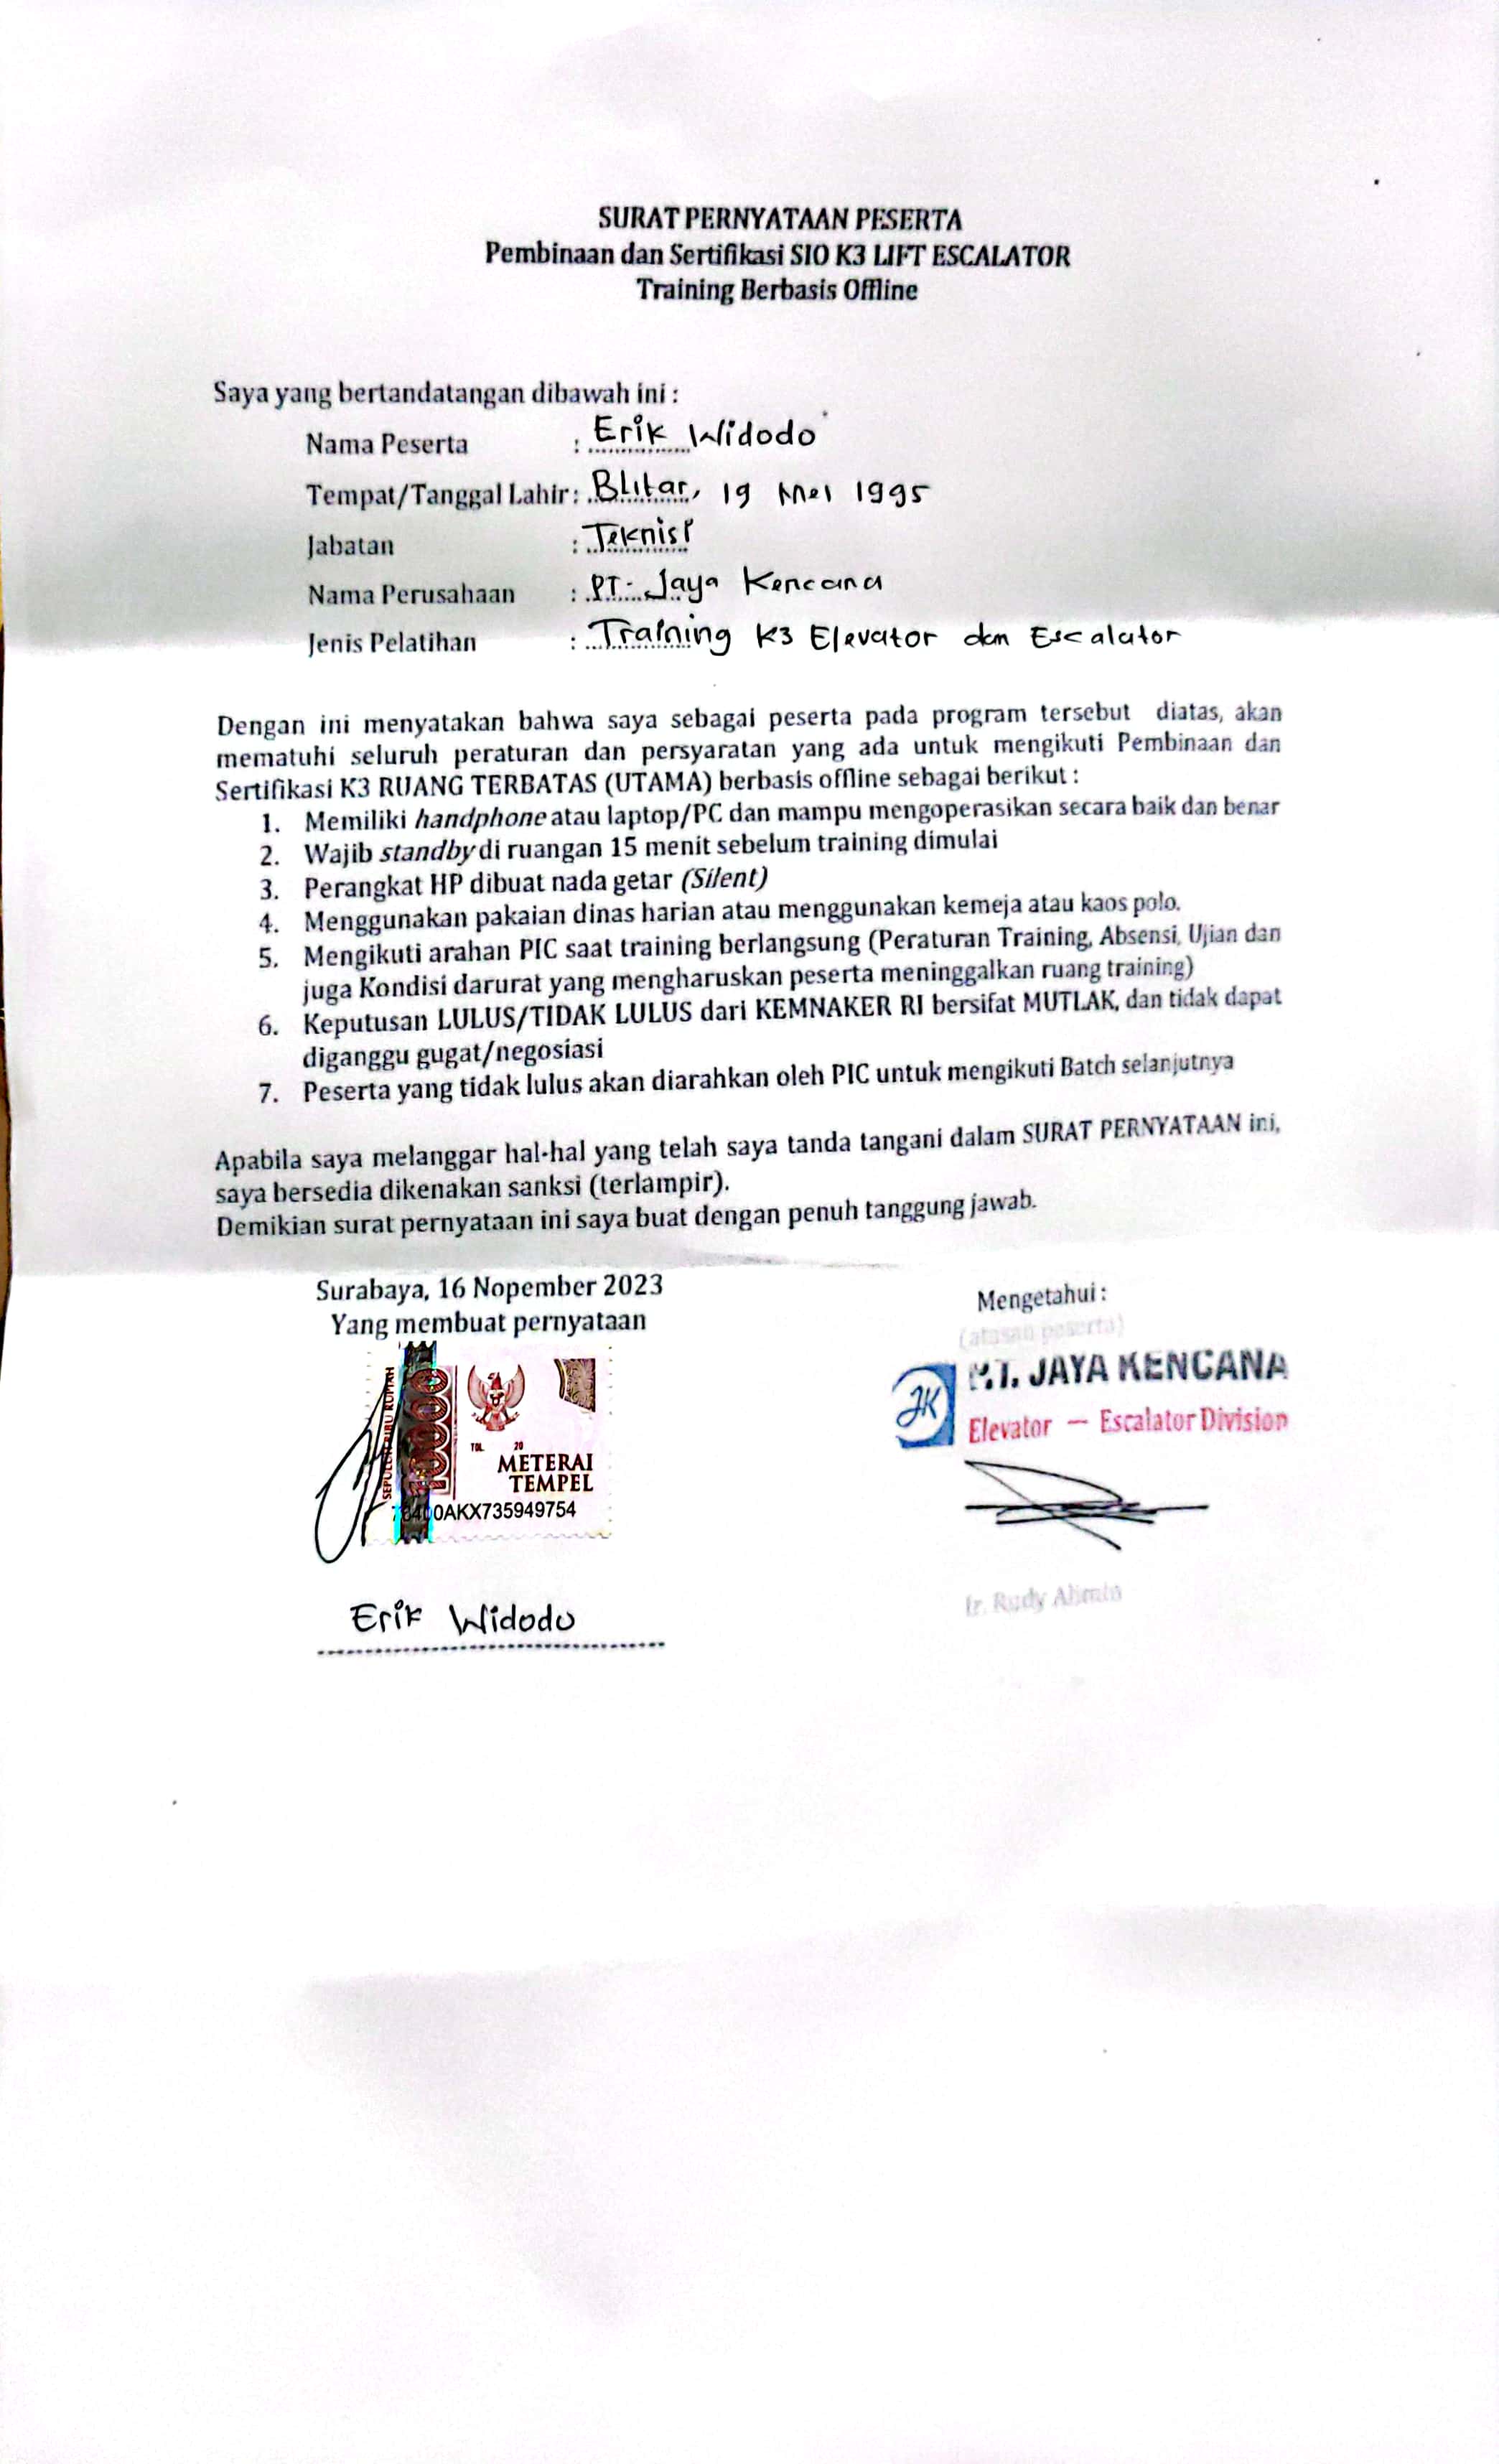 SURAT PERNYATAAN PESERTA
Pembinaan dan Sertifikasi SIO K3 LIFT ESCALATOR
Training Berbasis Offline
Saya yang bertandatangan dibawah ini :
Nama Peserta : Erik Widodo
Tempat/Tanggal Lahir: Blitar, 19 Mei 1995
Jabatan : Teknisi
Nama Perusahaan : PT. Jaya Kencana
Jenis Pelatihan : Training K3 Elevator dan Escalator
Dengan ini menyatakan bahwa saya sebagai peserta pada program tersebut diatas, akan
mematuhi seluruh peraturan dan persyaratan yang ada untuk mengikuti Pembinaan dan
Sertifikasi K3 RUANG TERBATAS (UTAMA) berbasis offline sebagai berikut :
1. Memiliki handphone atau laptop/PC dan mampu mengoperasikan secara baik dan benar
2. Wajib standby di ruangan 15 menit sebelum training dimulai
3. Perangkat HP dibuat nada getar (Silent)
4. Menggunakan pakaian dinas harian atau menggunakan kemeja atau kaos polo.
5. Mengikuti arahan PIC saat training berlangsung (Peraturan Training, Absensi, Ujian dan
juga Kondisi darurat yang mengharuskan peserta meninggalkan ruang training)
6. Keputusan LULUS/TIDAK LULUS dari KEMNAKER RI bersifat MUTLAK, dan tidak dapat
diganggu gugat/negosiasi
7. Peserta yang tidak lulus akan diarahkan oleh PIC untuk mengikuti Batch selanjutnya
Apabila saya melanggar hal-hal yang telah saya tanda tangani dalam SURAT PERNYATAAN ini,
saya bersedia dikenakan sanksi (terlampir).
Demikian surat pernyataan ini saya buat dengan penuh tanggung jawab.
Surabaya, 16 Nopember 2023
Yang membuat pernyataan
SEPULUH RIBU RUPIAH
10000
TGL 20
METERAI
TEMPEL
0AKX735949754
Erik Widodo
Mengetahui :
(atasan peserta)
JK
P.T. JAYA KENCANA
Elevator — Escalator Division
Ir. Rudy